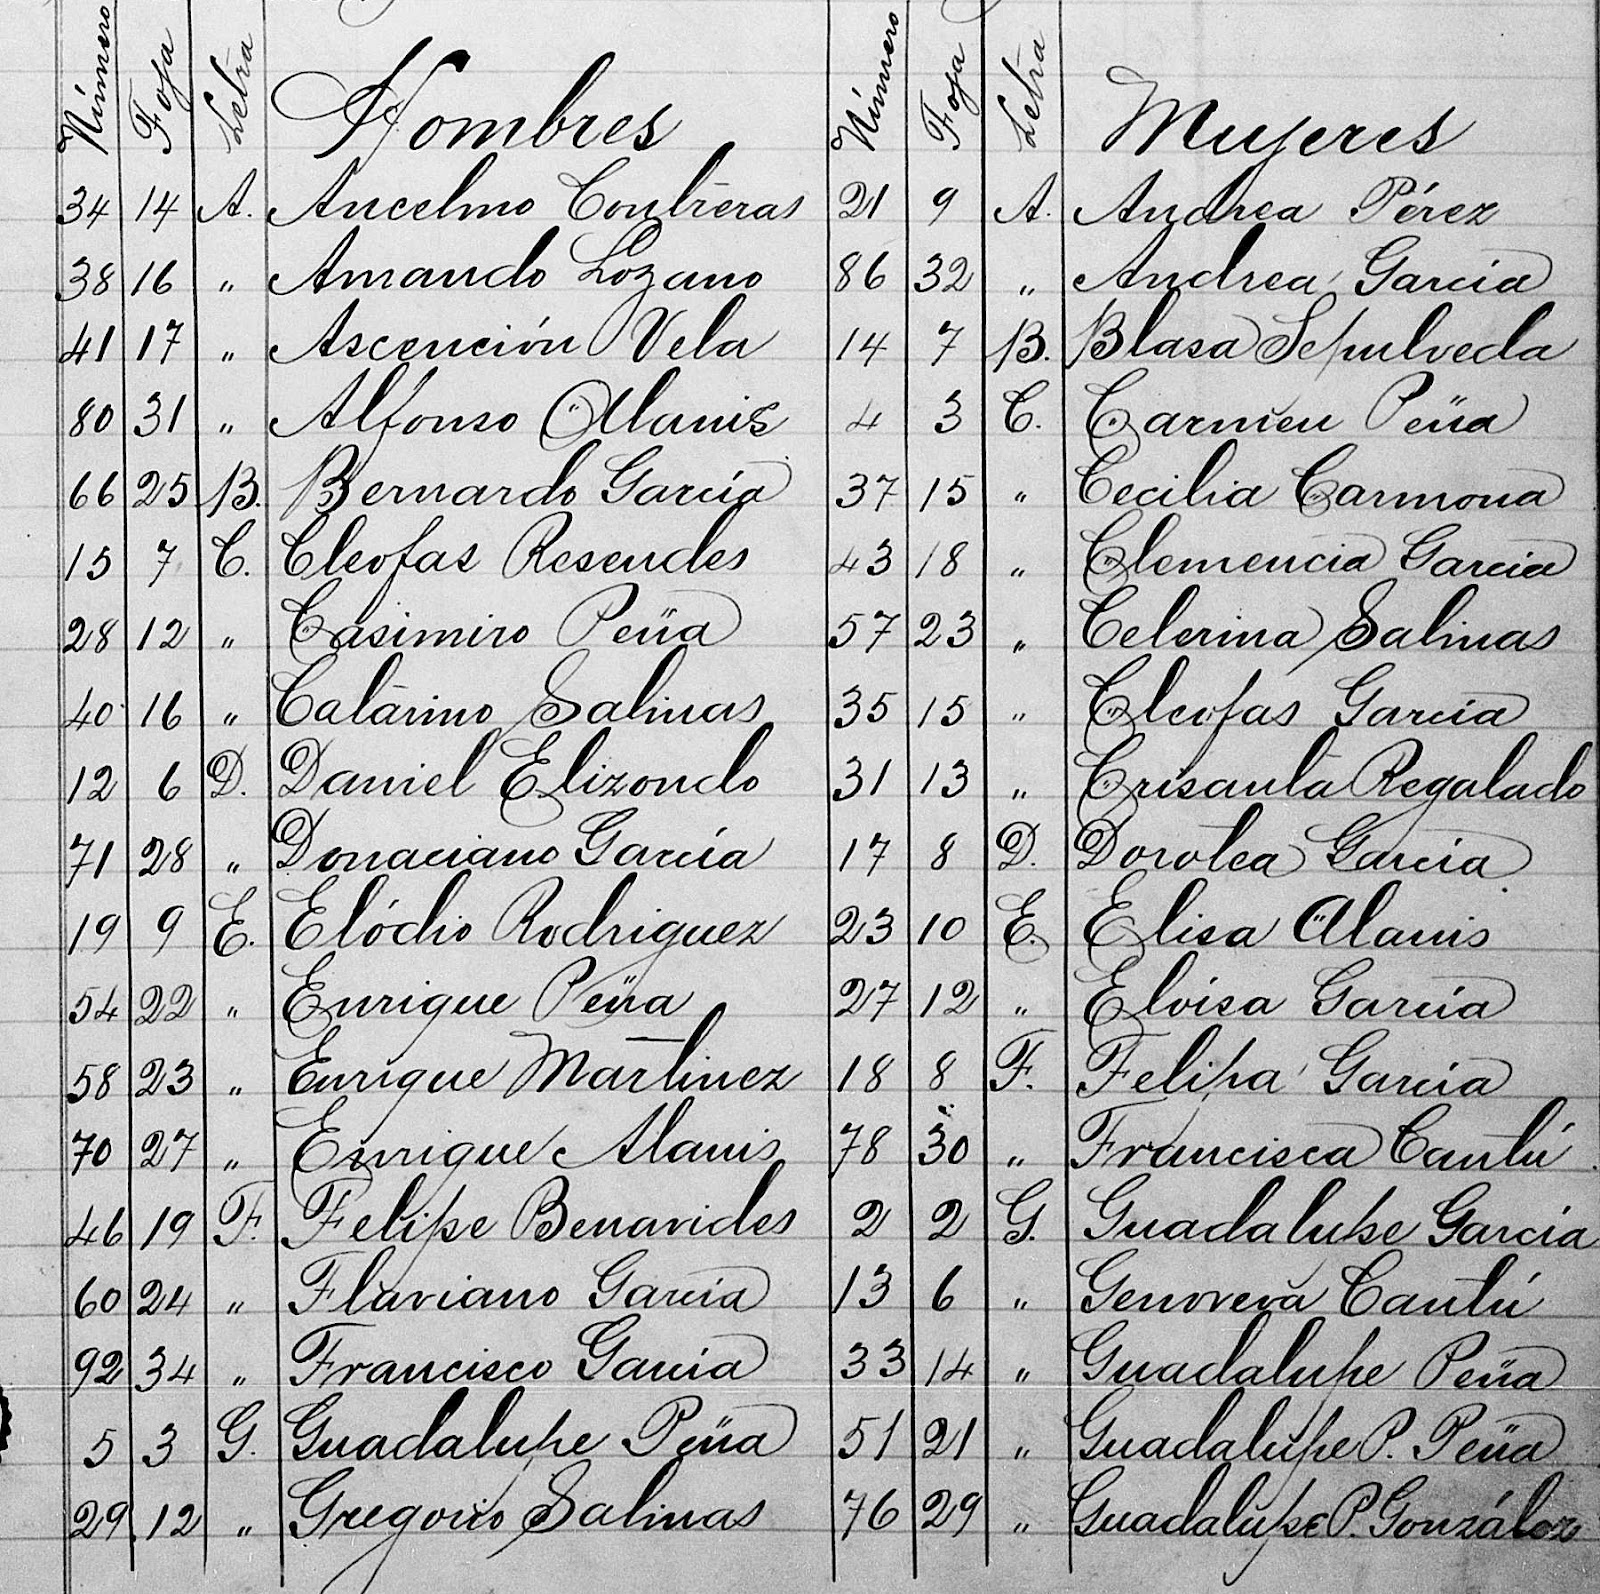 Número Foja Letra Hombres Número Foja Letra Mujeres
34 14 A. Ancelmo Contreras 21 9 A. Andrea Pérez
38 16 „ Amando Lozano 86 32 „ Andrea García
41 17 „ Ascención Vela 14 7 B. Blasa Sepulveda
80 31 „ Alfonso Alanis 4 3 C. Carmen Peña
66 25 B. Bernardo García 37 15 „ Cecilia Carmona
15 7 C. Cleofas Resendes 43 18 „ Clemencia García
28 12 „ Casimiro Peña 57 23 „ Celerina Salinas
40 16 „ Catárino Salinas 35 15 „ Cleofas García
12 6 D. Daniel Elizondo 31 13 „ Crisanta Regalado
71 28 „ Donaciano García 17 8 D. Dorotea García
19 9 E. Elódio Rodriguez 23 10 E. Elisa Alanis
54 22 „ Enrique Peña 27 12 „ Eloisa García
58 23 „ Enrique Martinez 18 8 F. Felipa García
70 27 „ Enrique Alanis 78 30 „ Francisca Cantú
46 19 F. Felipe Benavides 2 2 G. Guadalupe García
60 24 „ Flaviano García 13 6 „ Genoveva Cantú
92 34 „ Francisco García 33 14 „ Guadalupe Peña
5 3 G. Guadalupe Peña 51 21 „ Guadalupe P. Peña
29 12 „ Gregorio Salinas 76 29 „ Guadalupe P. González